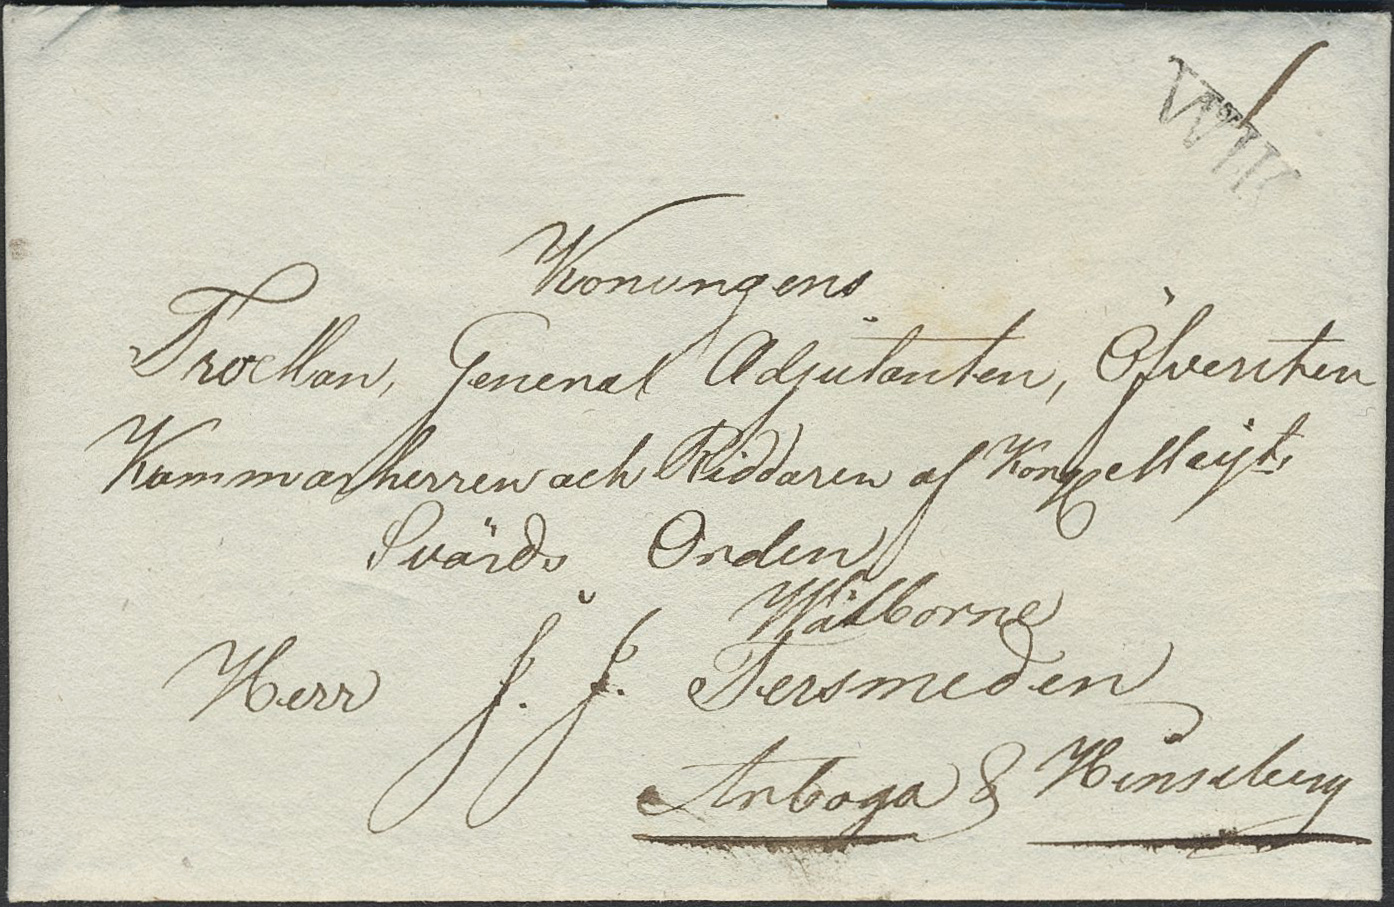 WIK
Konungens
Troe Man, General Adjutanten, Öfversten
Kammarherren och Riddaren af Kongl Maijts
Svärds Orden
Wälborne
Herr J. J. Tersmeden
Arboga & Hinseberg